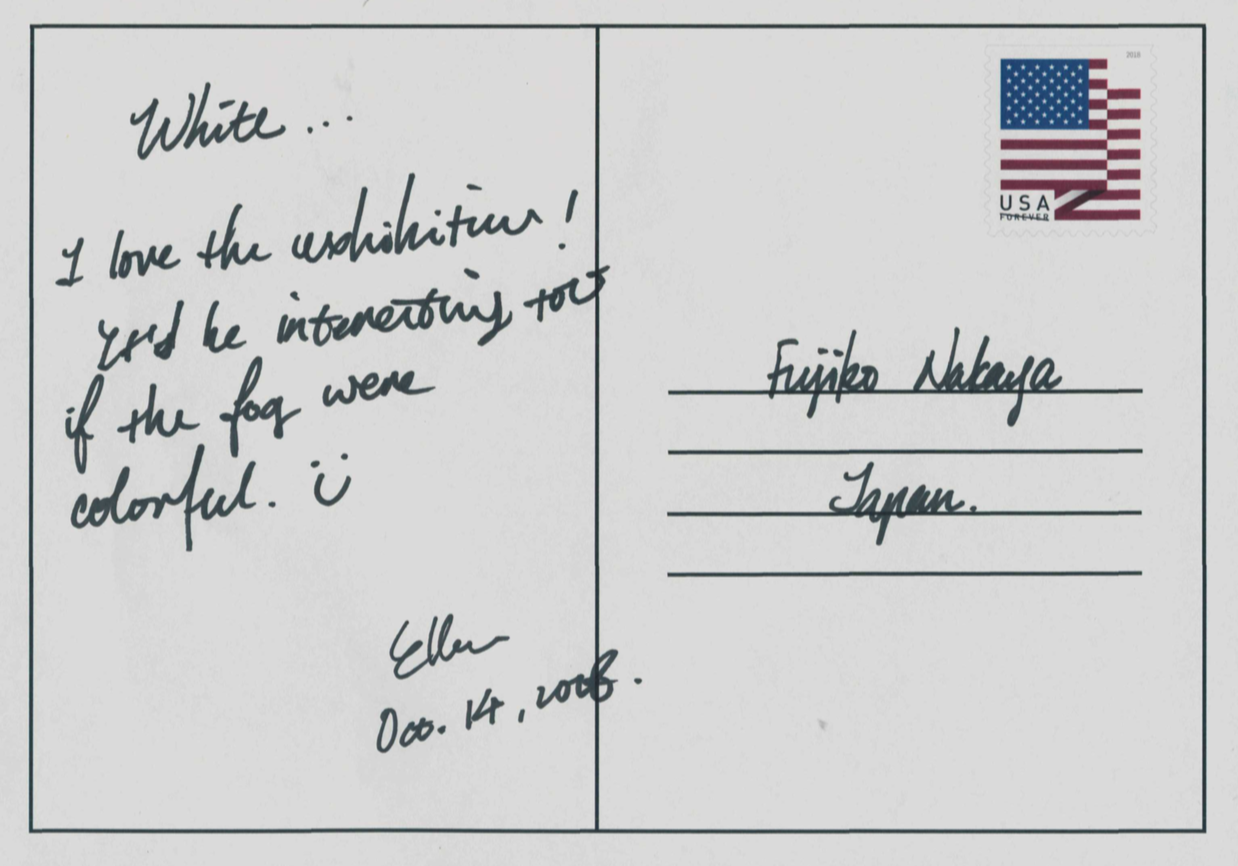 White...
I love the exhibition!
It'd be interesting too
if the fog were
colorful. :)
Ellen
Oct. 14, 2018.
2018
USA
FOREVER
Fujiko Nakaya
Japan.